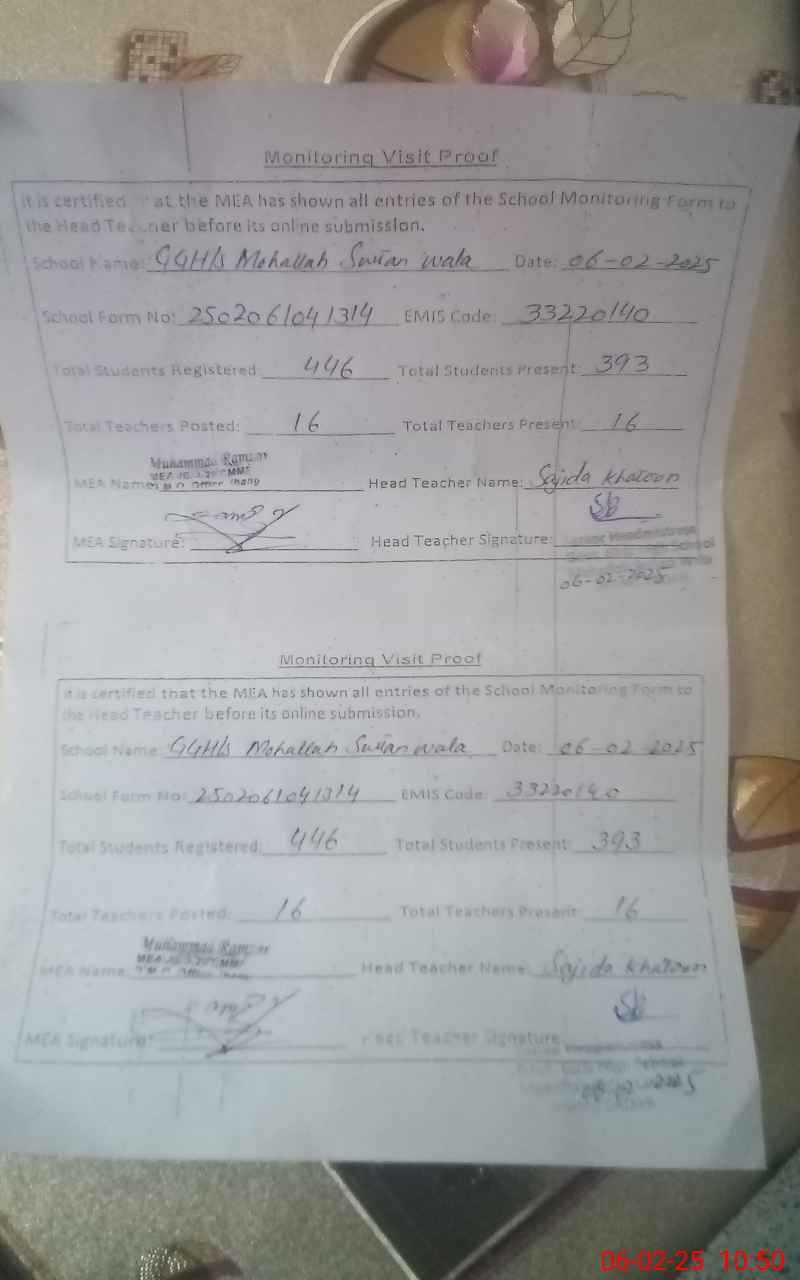 Monitoring Visit Proof
It is certified that the MEA has shown all entries of the School Monitoring Form to
the Head Teacher before its online submission.
School Name: GGH/s Mohallah Sultan wala Date: 06-02-2025
School Form No: 2502061041314 EMIS Code: 33220140
Total Students Registered 446 Total Students Present: 393
Total Teachers Posted: 16 Total Teachers Present: 16
Muhammad Ramzan
MEA Name: Head Teacher Name: Sajida Khatoon
Sk
MEA Signature: Head Teacher Signature:
06-02-2025
Monitoring Visit Proof
It is certified that the MEA has shown all entries of the School Monitoring Form to
the Head Teacher before its online submission.
School Name: GGH/s Mohallah Sultan wala Date: 06-02-2025
School Form No: 2502061041314 EMIS Code: 33220140
Total Students Registered: 446 Total Students Present: 393
Total Teachers Posted: 16 Total Teachers Present: 16
Muhammad Ramzan
MEA Name: Head Teacher Name: Sajida Khatoon
Sk
MEA Signature: Head Teacher Signature
06-02-25 10:50